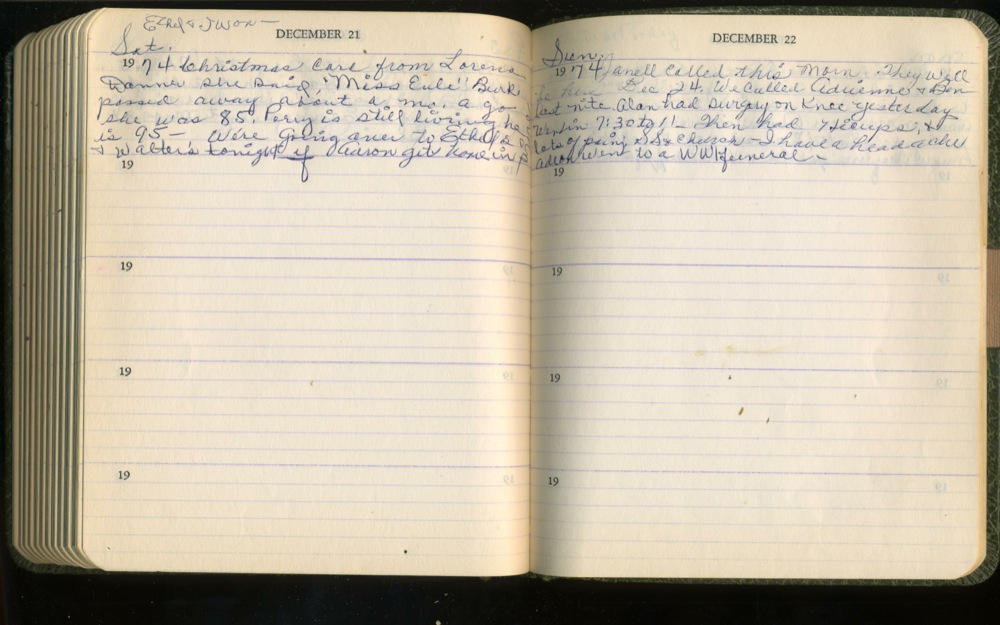 Ethel & I won -
DECEMBER 21
Sat.
1974 Christmas Card from Lorena
Danner she said, "Miss Eula" Burk
passed away about a mo. a go
she was 85. Perry is still living he
is 95 - We're going over to Ethel's
& Walter's tonight if Aaron git home in
19
19
19
19
DECEMBER 22
Sun.
1974 Janell called this Morn. They will
be here Dec 24. We called Adrienne & Ben
last nite. Alan had surgery on Knee yesterday
Went in 7:30 to 11 - Then had Hicups, &
lots of pain. S.S. & Church - I have a head ache
Aaron went to a WWI funeral -
19
19
19
19